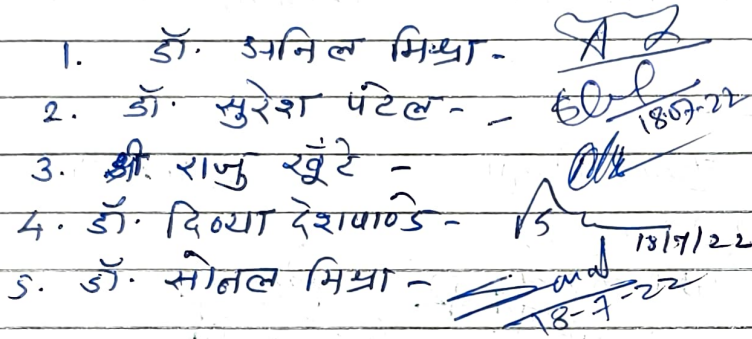 1. डॉ. अनिल मिश्रा -
2. डॉ. सुरेश पटेल - - 18.07-22
3. श्री. राजु खूँटे -
4. डॉ. दिव्या देशपाण्डे - 18/7/22
5. डॉ. सोनल मिश्रा - 18-7-22